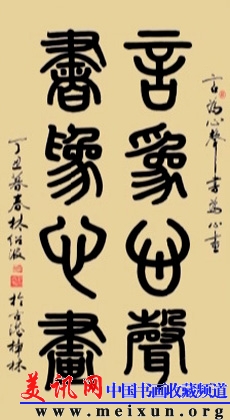 言為心聲書為心畫
言為心聲
書為心畫
丁丑暮春林
美讯网
中国书画收藏频道
www.meixun.org